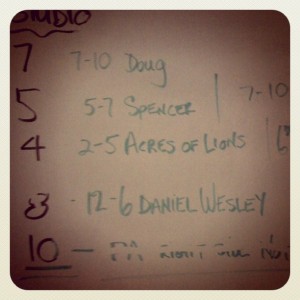 STUDIO
7 7-10 Doug
5 5-7 SPENCER | 7-10
4 2-5 ACRES OF LIONS
3 - 12-6 DANIEL WESLEY
10 -